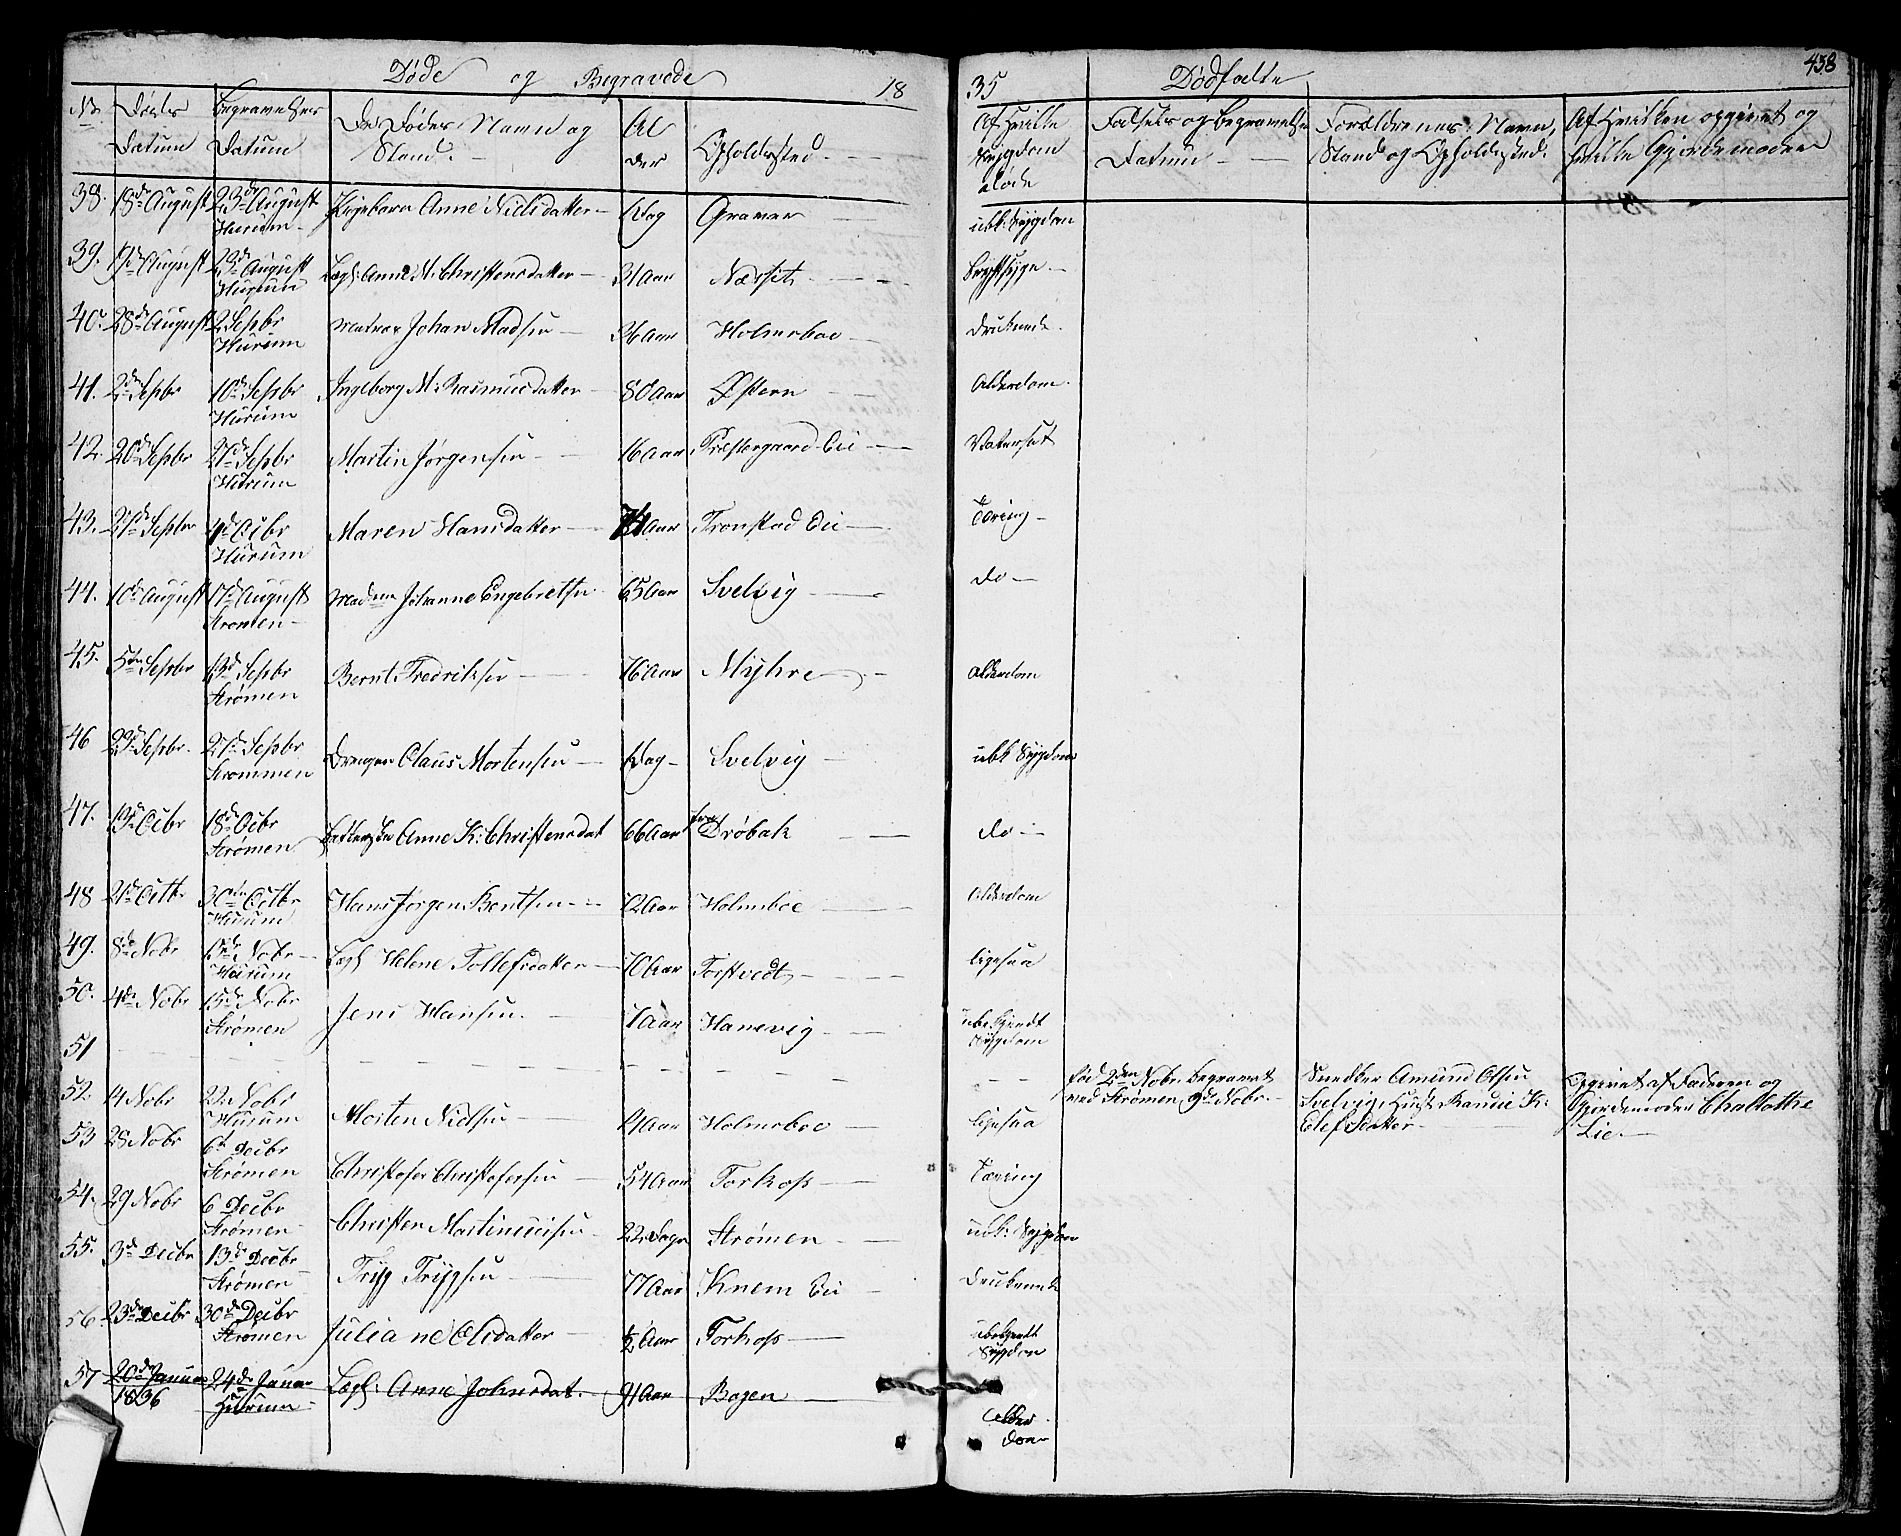 Døde og Begravede 18
35 Dødfødte 438
No Dødes Datum Begravelses Datum De Dødes Navn og Stand. Alder Opholdssted. Af Hvilke Sygdom døde Fødsels og Begravelse Datum Forældrenes Navn, Stand og Opholdssted. Af Hvilken opgivet og hvilke Gjordemoder
38. 18de August 23de August Hurum Pigebarn Anne Nielsdatter 1 Dag Graver ubk: Sygdom
39. 19de August 23de August Hurum Lægl: Anne M: Christensdatter 31 Aar Næsset Brystsyge
40. 28de August 2 Sepbr Hurum Matros Johan Madsen 36 Aar Holmsboe Druknede
41. 2den Sepbr 10de Sepbr Hurum Ingeborg M: Rasmusdatter 80 Aar Østern Alderdom
42. 20de Sepbr 27de Sepbr Hurum Martin Jørgensen 16 Aar Præstegaard Eie Vatersot
43. 27de Sepbr 4de Octbr Hurum Maren Hansdatter 74 Aar Tronstad Eie Tæring
44. 10de August 17de August Strømen Madam Johanne Engebretsen 65 Aar Svelvig do
45. 5te Sepbr 13de Sepbr Strømen Bernt Fredriksen 76 Aar Myhre Alderdom
46 23de Sepbr. 27de Sepbr Strømmen Drengen Claus Mortensen 1 Dag Svelvig ubk Sygdom
47. 13de Ocbr 18de Ocbr Strømen Anne K: Christensdat 66 Aar fra Drøbak do
48 21de Octbr 30te Octbr Hurum Hans Jørgen Bentsen 72 Aar Holmsboe Alderdom
49. 8de Nobr 15de Nobr Hurum Lægl Helene Tollefsdatter 70 Aar Tofstvedt ligesaa
50. 4de Nobr 15de Nobr Strømen Jens Hansen. 7 Aar Hanevig ubekjendt Sygdom
51 Fød 2den Nobr. begravet ved Strømen 9de Nobr. Snedker Amund Olsen Svelvig, Hust. Randie K: Olefsdatter Opgivet af Faderen og Gjordemoder Challotthe Lie
52. 14 Nobr 22 Nobr Hurum Morten Nielsen Aar Holmsboe ligesaa
53 28 Nobr 6te Decbr Strømen Christofer Christofersen 54 Aar Torkops Tæring
54. 29 Nobr 6 Decbr Strømen Christen Martiniussen 22 Dage Strømen ubk: Sygdom
55. 3de Decbr 13de Decbr Strømen Tryg Trygsen 77 Aar Knem Eie Druknede
56 23de Decbr 30de Decbr Strømen Juliane Olsdatter 1/2 Aar Torkops ubekjendt Sygdom
57 20de Januar 1836 24de Januar Hurum Lægl: Anne Johnsdat. 91 Aar Bogen Alderdom